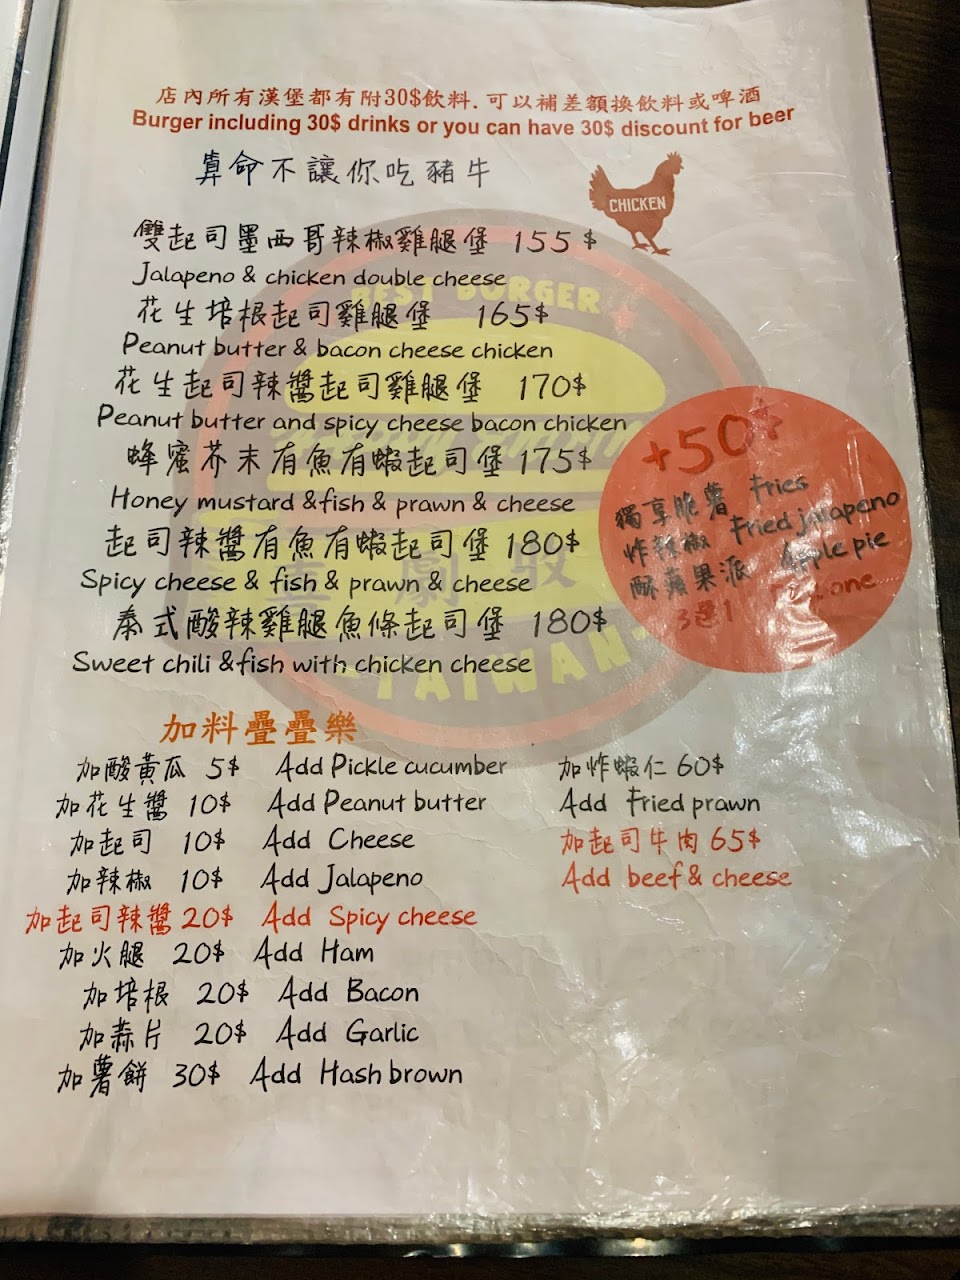 店內所有漢堡都有附30$飲料.可以補差額換飲料或啤酒
Burger including 30$ drinks or you can have 30$ discount for beer
算命不讓你吃豬牛
CHICKEN
雙起司墨西哥辣椒雞腿堡 155$
Jalapeno & chicken double cheese
BEST BURGER
花生培根起司雞腿堡 165$
Peanut butter & bacon cheese chicken
花生起司辣醬起司雞腿堡 170$
Peanut butter and spicy cheese bacon chicken
蜂蜜芥末有魚有蝦起司堡 175$
Honey mustard &fish & prawn & cheese
起司辣醬有魚有蝦起司堡 180$
Spicy cheese & fish & prawn & cheese
泰式酸辣雞腿魚條起司堡 180$
Sweet chili &fish with chicken cheese
TAIWAN
+50
獨享脆薯 Fries
炸辣椒 Fried jalapeno
酥蘋果派 Apple pie
3選1 one
加料疊疊樂
加酸黃瓜 5$ Add Pickle cucumber
加花生醬 10$ Add Peanut butter
加起司 10$ Add Cheese
加辣椒 10$ Add Jalapeno
加起司辣醬 20$ Add Spicy cheese
加火腿 20$ Add Ham
加培根 20$ Add Bacon
加蒜片 20$ Add Garlic
加薯餅 30$ Add Hash brown
加炸蝦仁 60$
Add Fried prawn
加起司牛肉 65$
Add beef & cheese